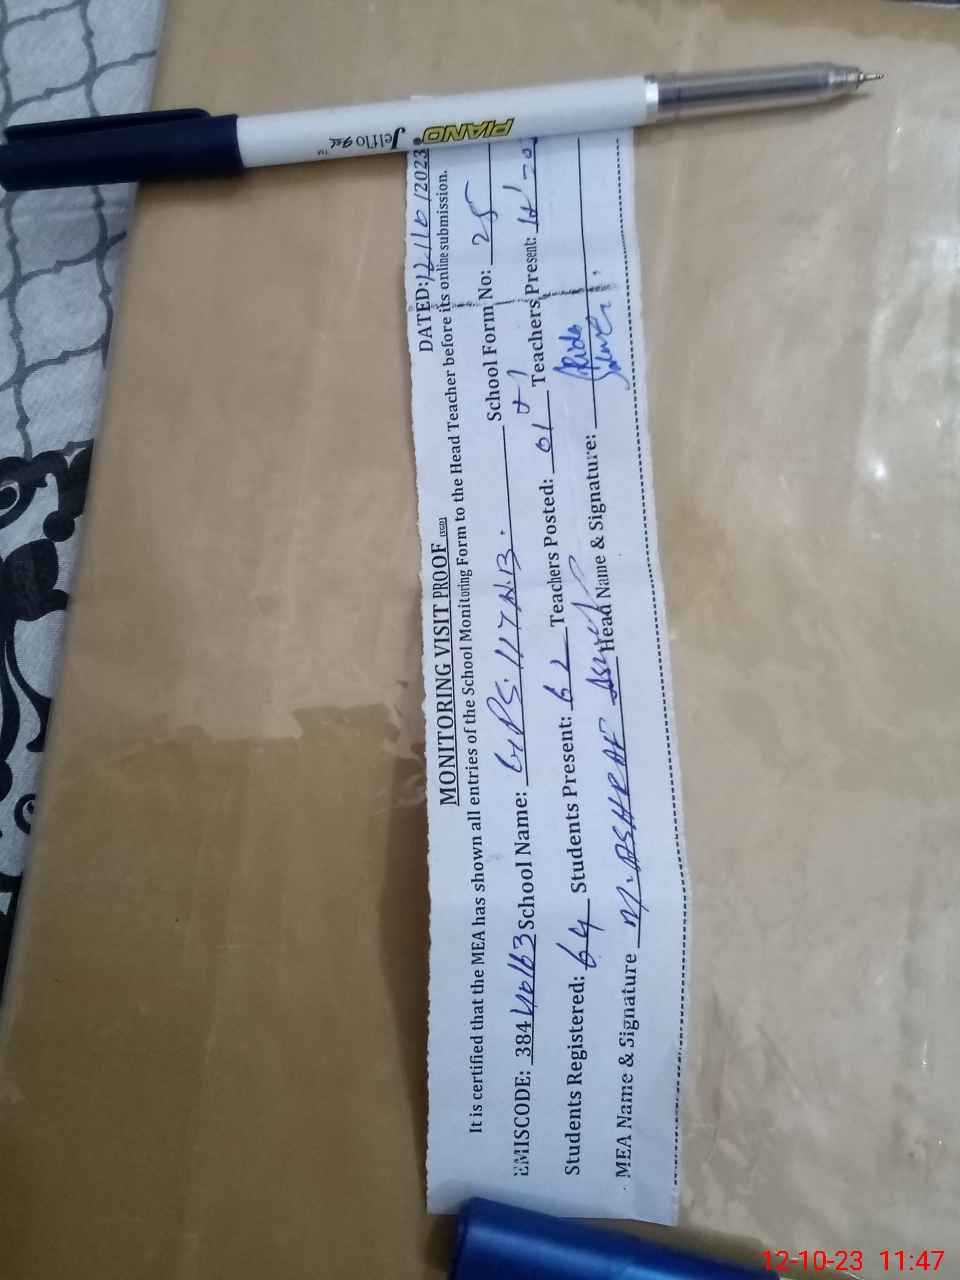 PIANO® Jelflo gel™
DATED: 12/10/2023
MONITORING VISIT PROOF
It is certified that the MEA has shown all entries of the School Monitoring Form to the Head Teacher before its online submission.
EMISCODE: 384 School Name: GPS. 117 N.B. School Form No: 25
Students Registered: 64 Students Present: 62 Teachers Posted: 01+1 Teachers Present:
MEA Name & Signature M. ASHRAF Head Name & Signature:
12-10-23 11:47